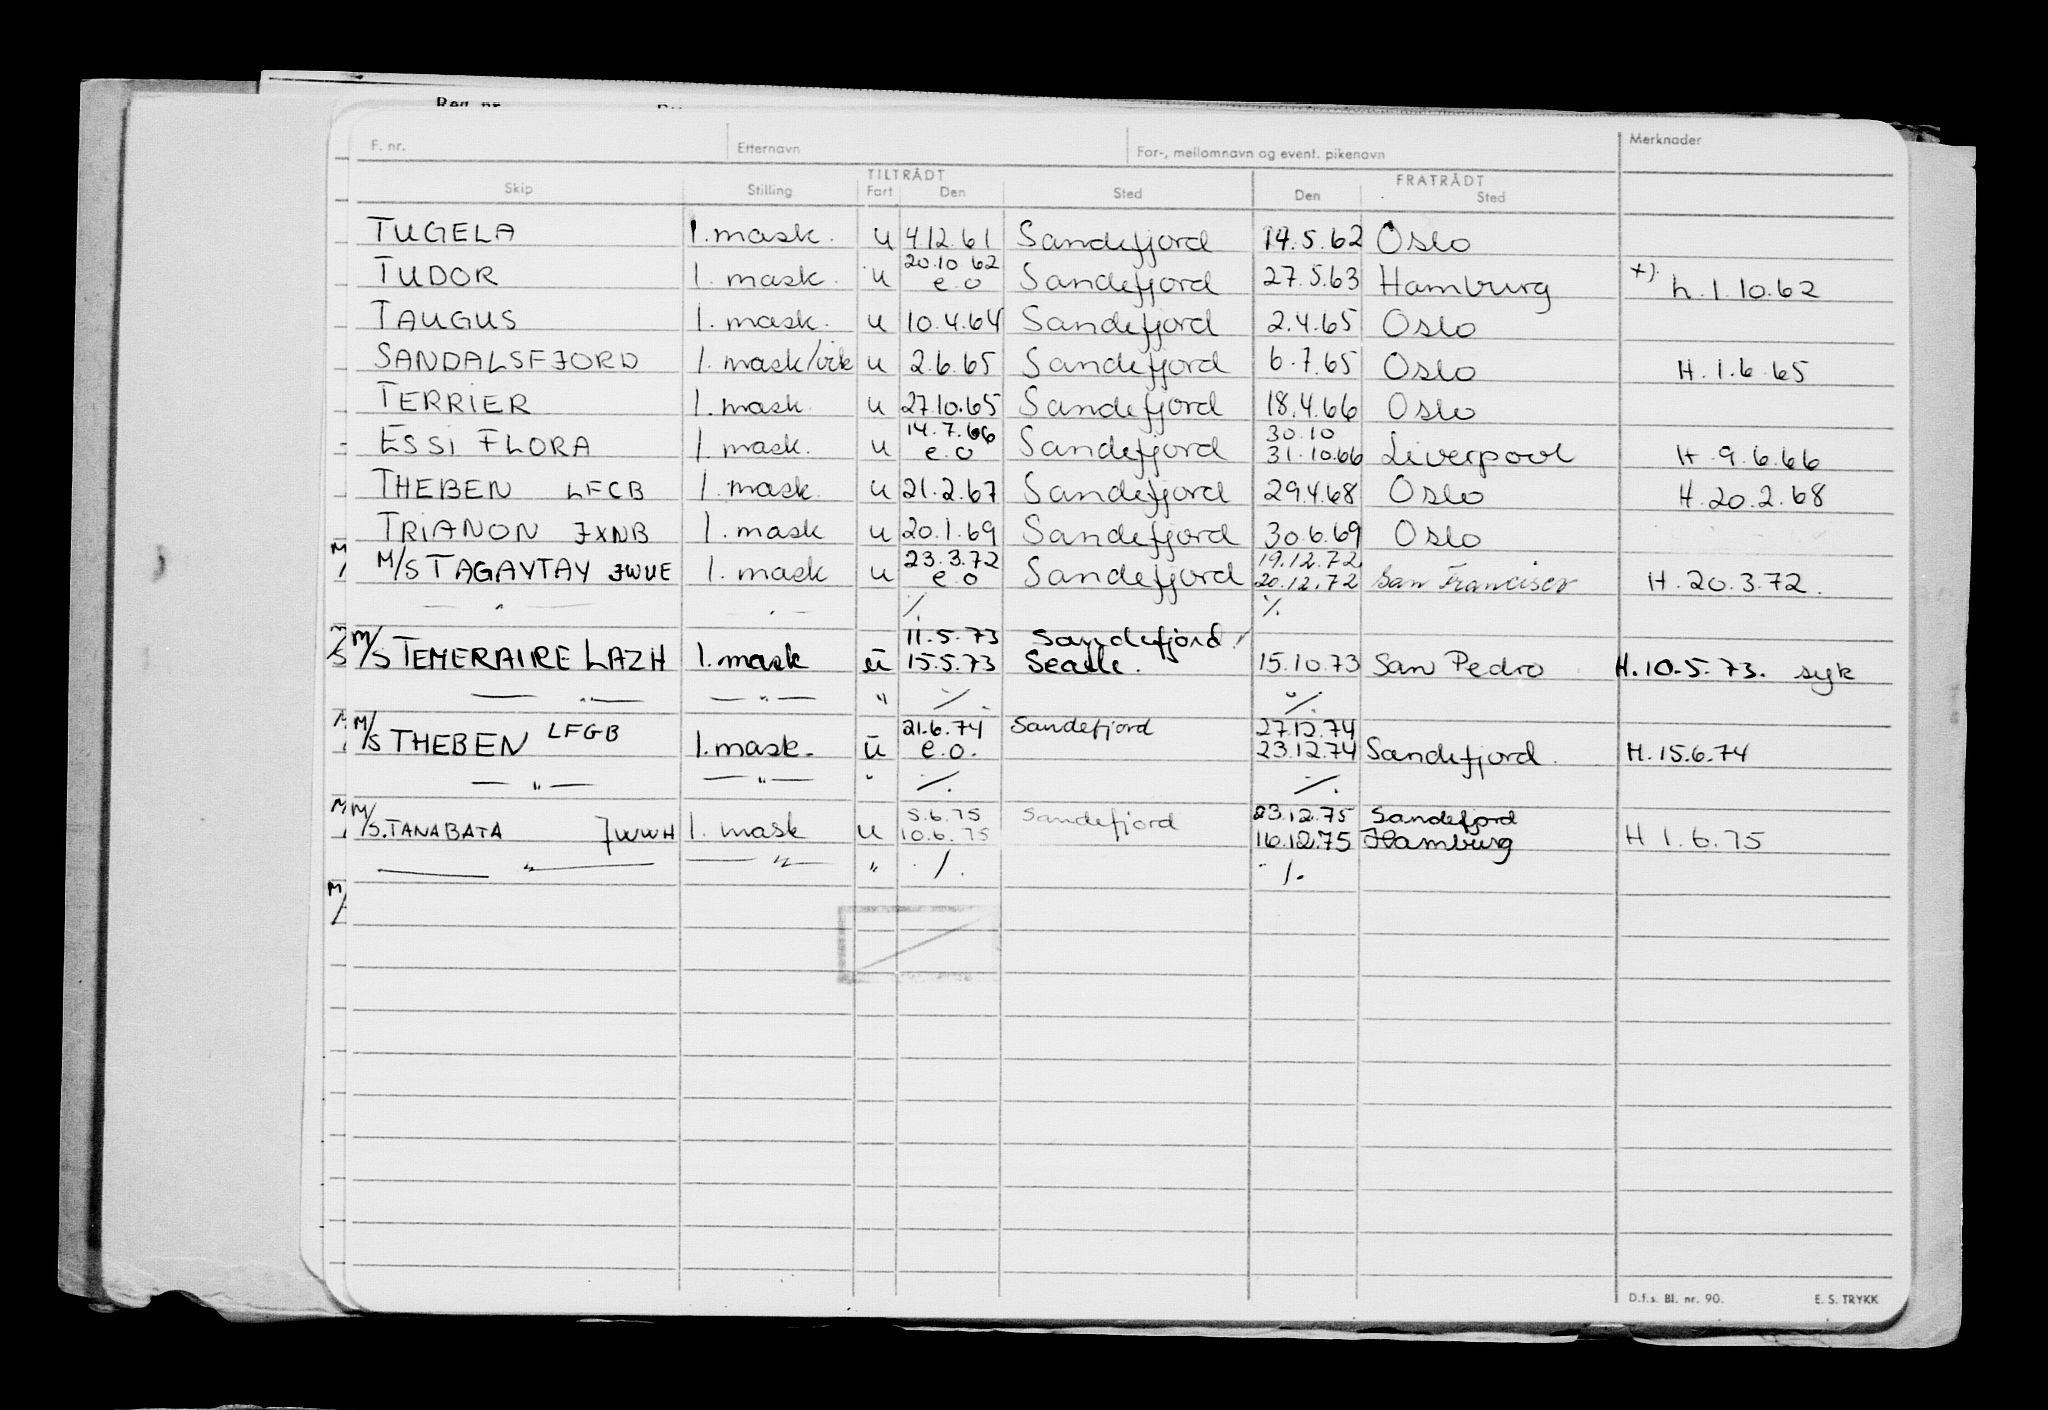 F. nr. Etternavn For-, mellomnavn og event. pikenavn Merknader
TILTRÅDT FRATRÅDT
Skip Stilling Fart Den Sted Den Sted
TUGELA 1. mask. u 4.12.61 Sandefjord 14.5.62 Oslo
20.10 62
TUDOR 1. mask. u e.o Sandefjord 27.5.63 Hamburg +) h.1.10.62
TAUGUS 1. mask. u 10.4.64 Sandefjord 2.4.65 Oslo
SANDALSFJORD 1. mask/vik u 2.6.65 Sandefjord 6.7.65 Oslo H.1.6.65
TERRIER 1. mask. u 27.10.65 Sandefjord 18.4.66 Oslo
14.7.66 30.10
ESSI FLORA 1. mask. u e.o Sandefjord 31.10.66 Liverpool H.9.6.66
THEBEN LFCB 1. mask. u 21.2.67 Sandefjord 29.4.68 Oslo H.20.2.68
TRIANON JXNB 1. mask u 20.1.69 Sandefjord 30.6.69 Oslo
23.3.72 19.12.72
M/S TAGAYTAY JWUE 1. mask u e.o Sandefjord 20.12.72 San Francisco H.20.3.72.
— " — — " — ./. ./.
11.5.73 Sandefjord/
M/S TEMERAIRE LAZH 1. mask u 15.5.73 Seattle. 15.10.73 San Pedro H.10.5.73. syk
— " — — " — " ./. ./.
LFGB 21.6.74 Sandefjord 27.12.74
M/S THEBEN 1. mask. u e.o. 23.12.74 Sandefjord. H.15.6.74
— " — — " — " ./. ./.
5.6.75 Sandefjord 23.12.75 Sandefjord
M/S. TANABATA JWWH 1. mask u 10.6.75 16.12.75 Hamburg H 1.6.75
— " — — " — " ./. ./.
D.f.s. Bl. nr. 90. E. S. TRYKK